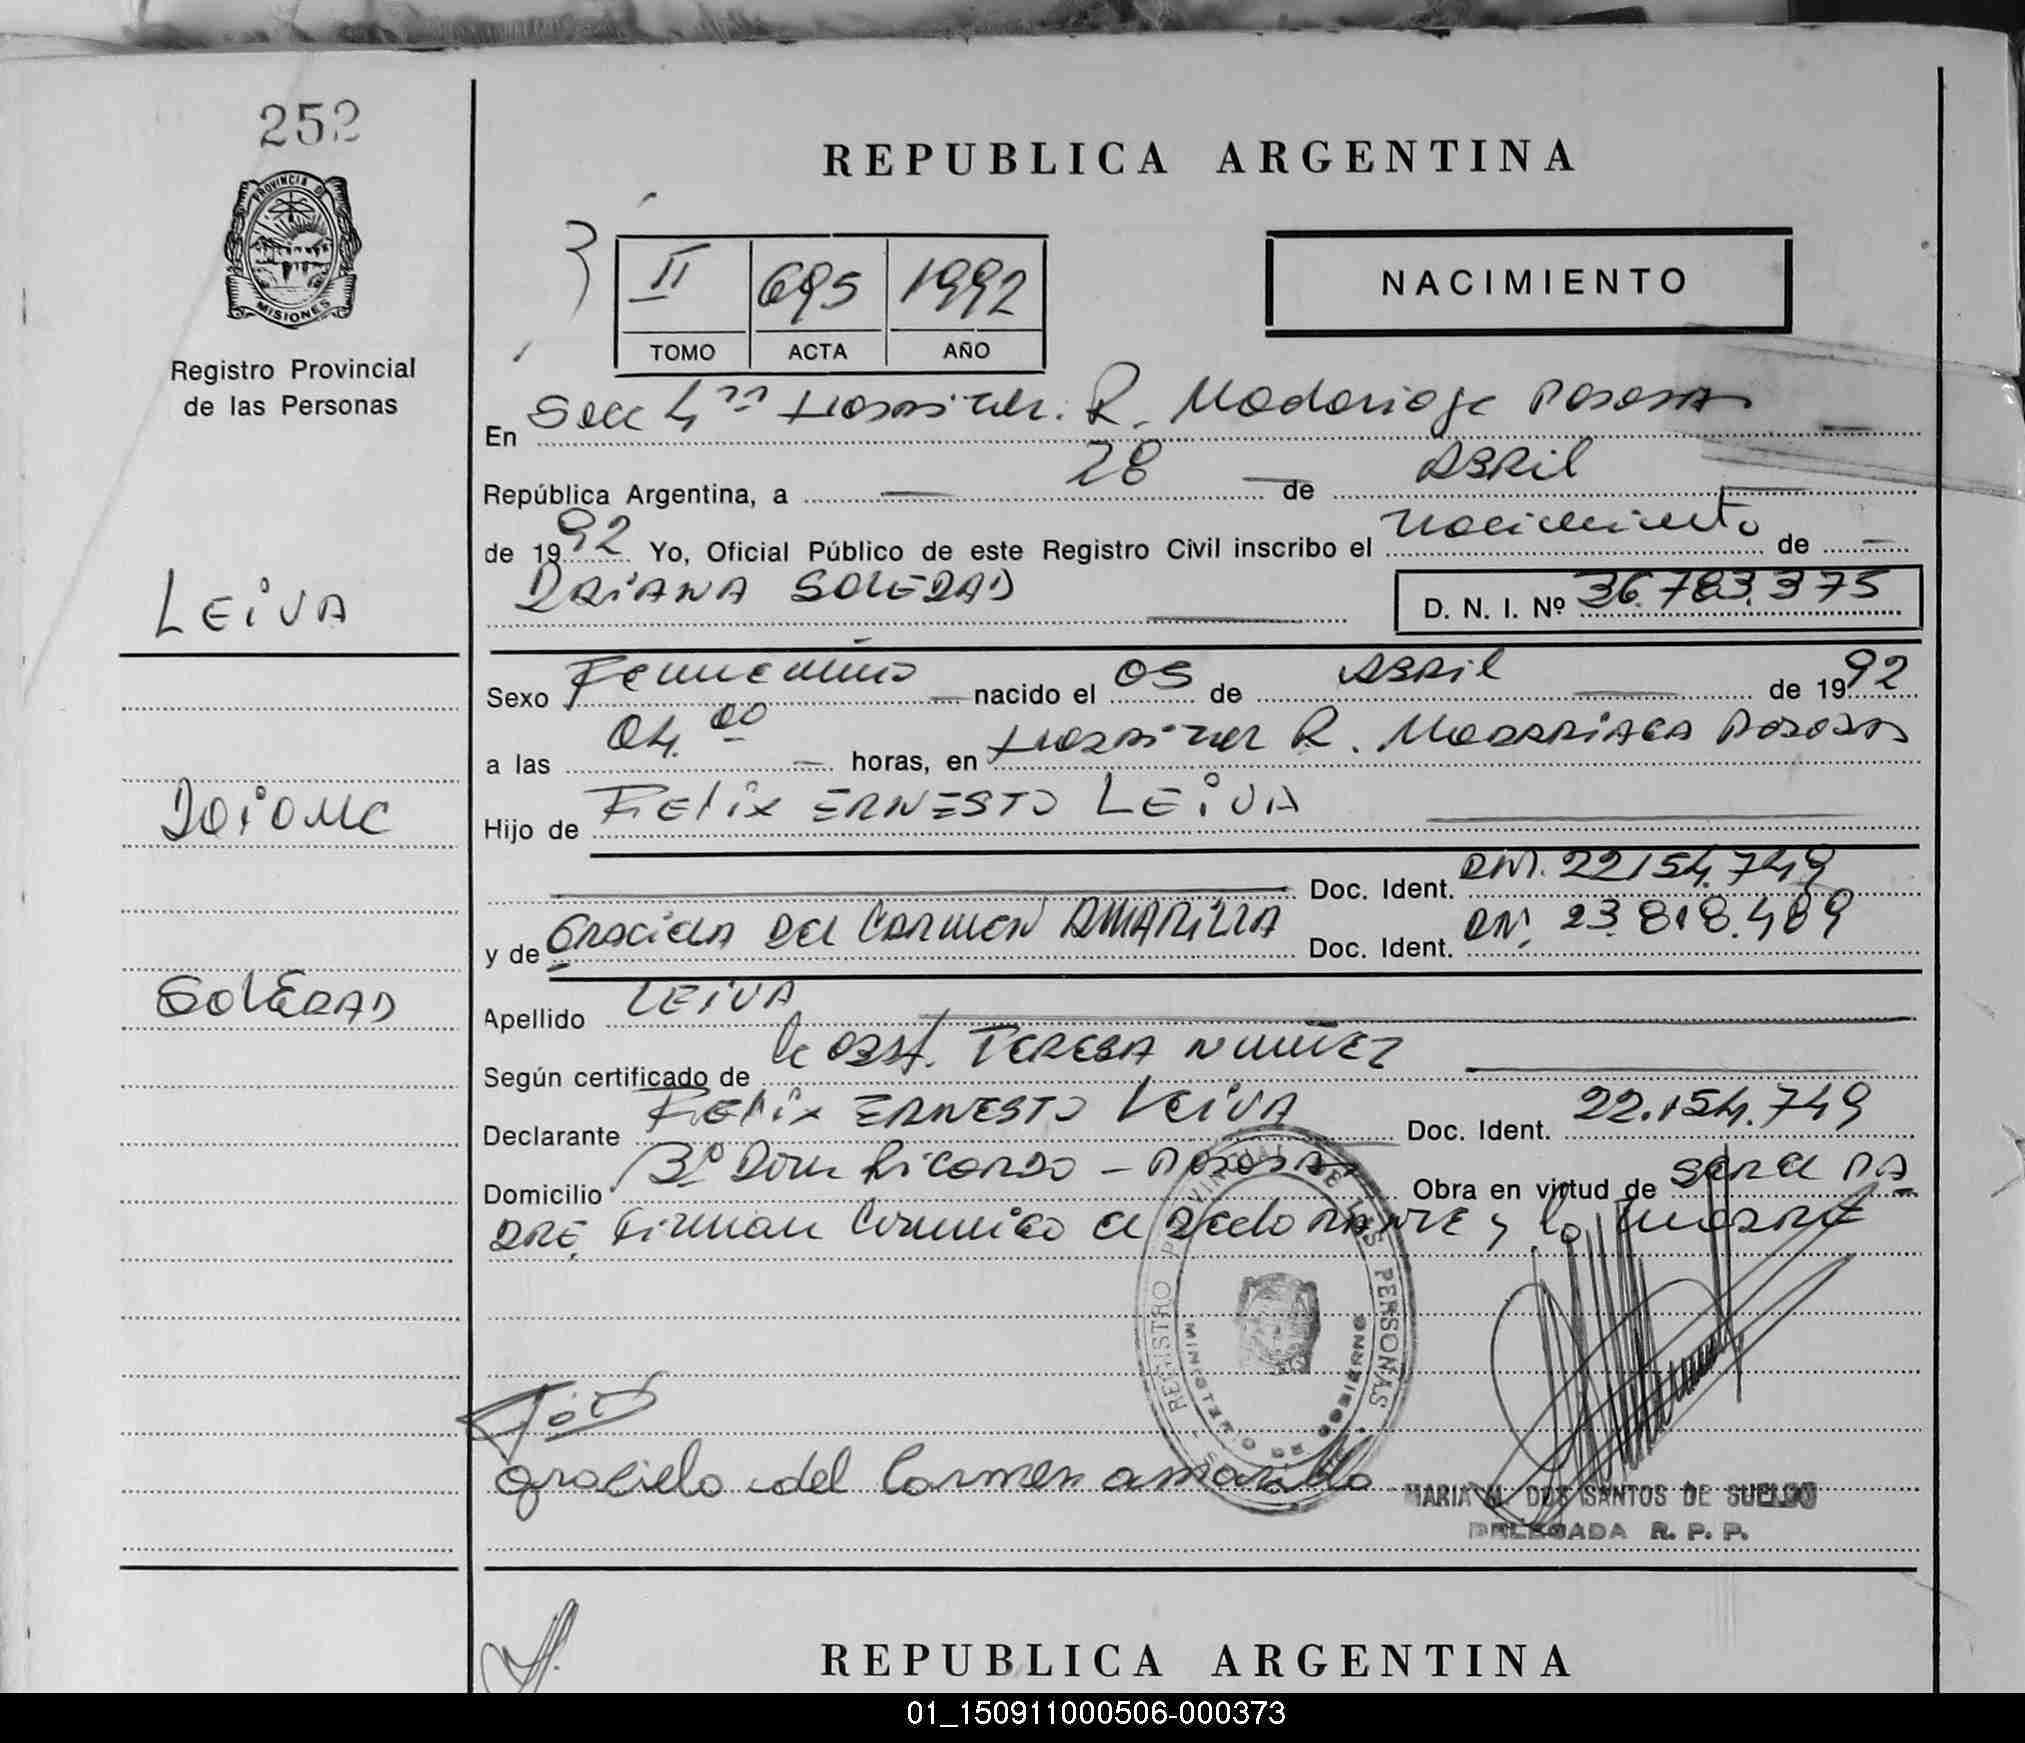 252
PROVINCIA DE
MISIONES
Registro Provincial
de las Personas
REPUBLICA ARGENTINA
II 695 1992
TOMO ACTA AÑO
NACIMIENTO
En Secc 4ta Hospital. R. Madariaga Posadas
República Argentina, a 28 de ABRil
de 1992 Yo, Oficial Público de este Registro Civil inscribo el nacimiento de
DAIANA SOLEDAD D. N. I. Nº 36.783.375
LEIVA
Sexo Femenino nacido el 05 de ABRil de 1992
a las 04.00 horas, en Hospital R. MADARIAGA POSADAS
DAIANA
Hijo de FELIX ERNESTO LEIVA
Doc. Ident. DNI. 22154.749
y de GRACIELA DEL CARMEN AMARILLA Doc. Ident. DNI. 23.818.489
SOLEDAD
Apellido LEIVA
Según certificado de la obst. TERESA NUÑEZ
Declarante FELIX ERNESTO LEIVA Doc. Ident. 22.154.749
Domicilio Bº Don Ricardo - POSADAS Obra en virtud de ser el PA
DRE, firman conmigo el declarante y la madre
REGISTRO PROVINCIAL DE LAS PERSONAS
MINISTERIO DE GOBIERNO
graciela del Carmen amarilla
MARIA M. DOS SANTOS DE SUELDO
DELEGADA R. P. P.
REPUBLICA ARGENTINA
01_150911000506-000373